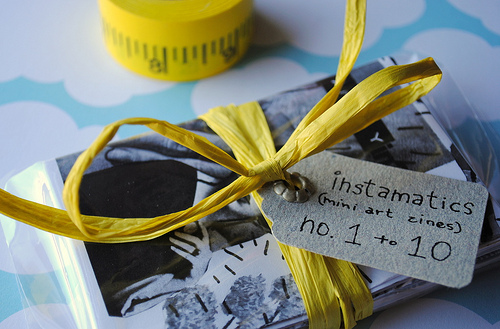 instamatics
(mini art zines)
no. 1 to 10